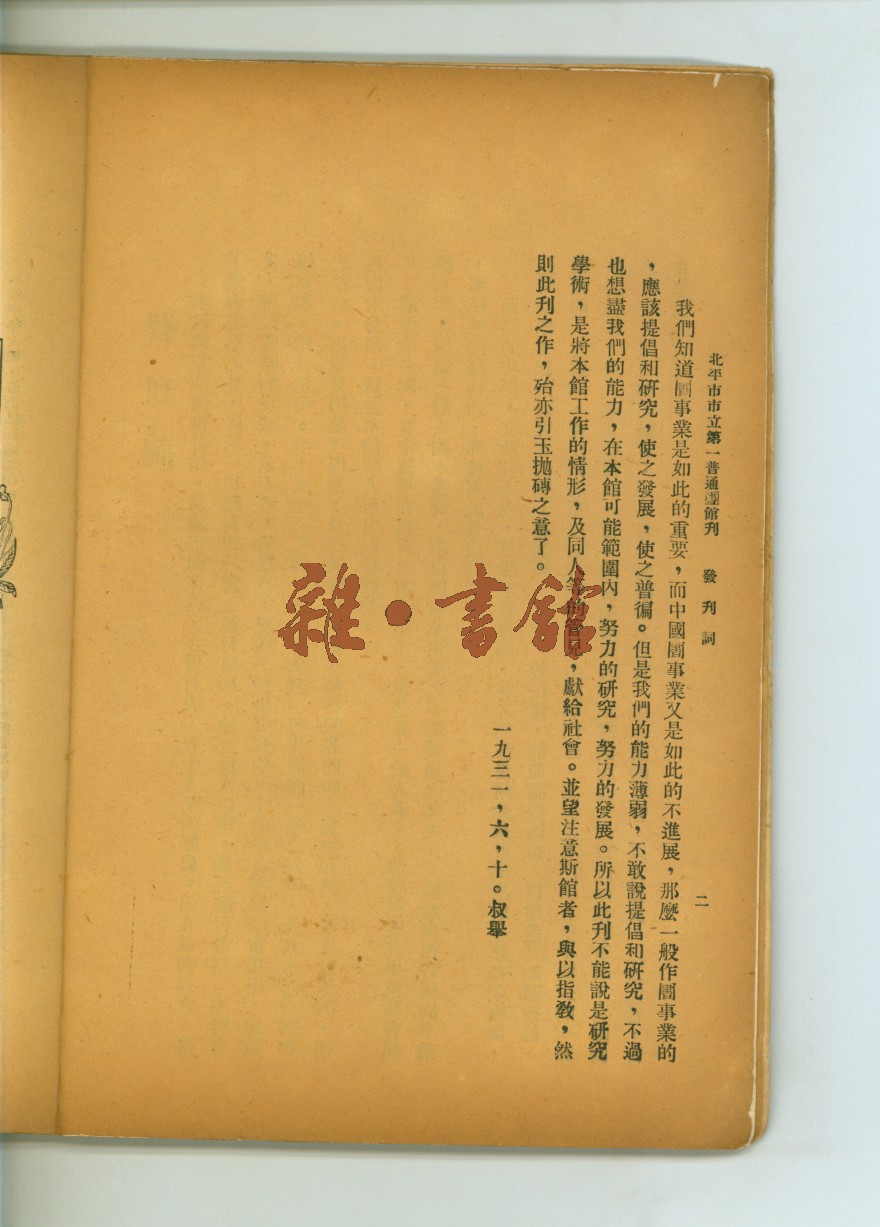 北平市市立第一普通圕館刊　發刊詞　二
我們知道圕事業是如此的重要，而中國圕事業又是如此的不進展，那麼一般作圕事業的
，應該提倡和研究，使之發展，使之普徧。但是我們的能力薄弱，不敢說提倡和研究，不過
也想盡我們的能力，在本館可能範圍內，努力的研究，努力的發展。所以此刊不能說是研究
學術，是將本館工作的情形，及同人等的管見，獻給社會。並望注意斯館者，與以指教，然
則此刊之作，殆亦引玉拋磚之意了。
一九三一，六，十。叔舉
雜·書館